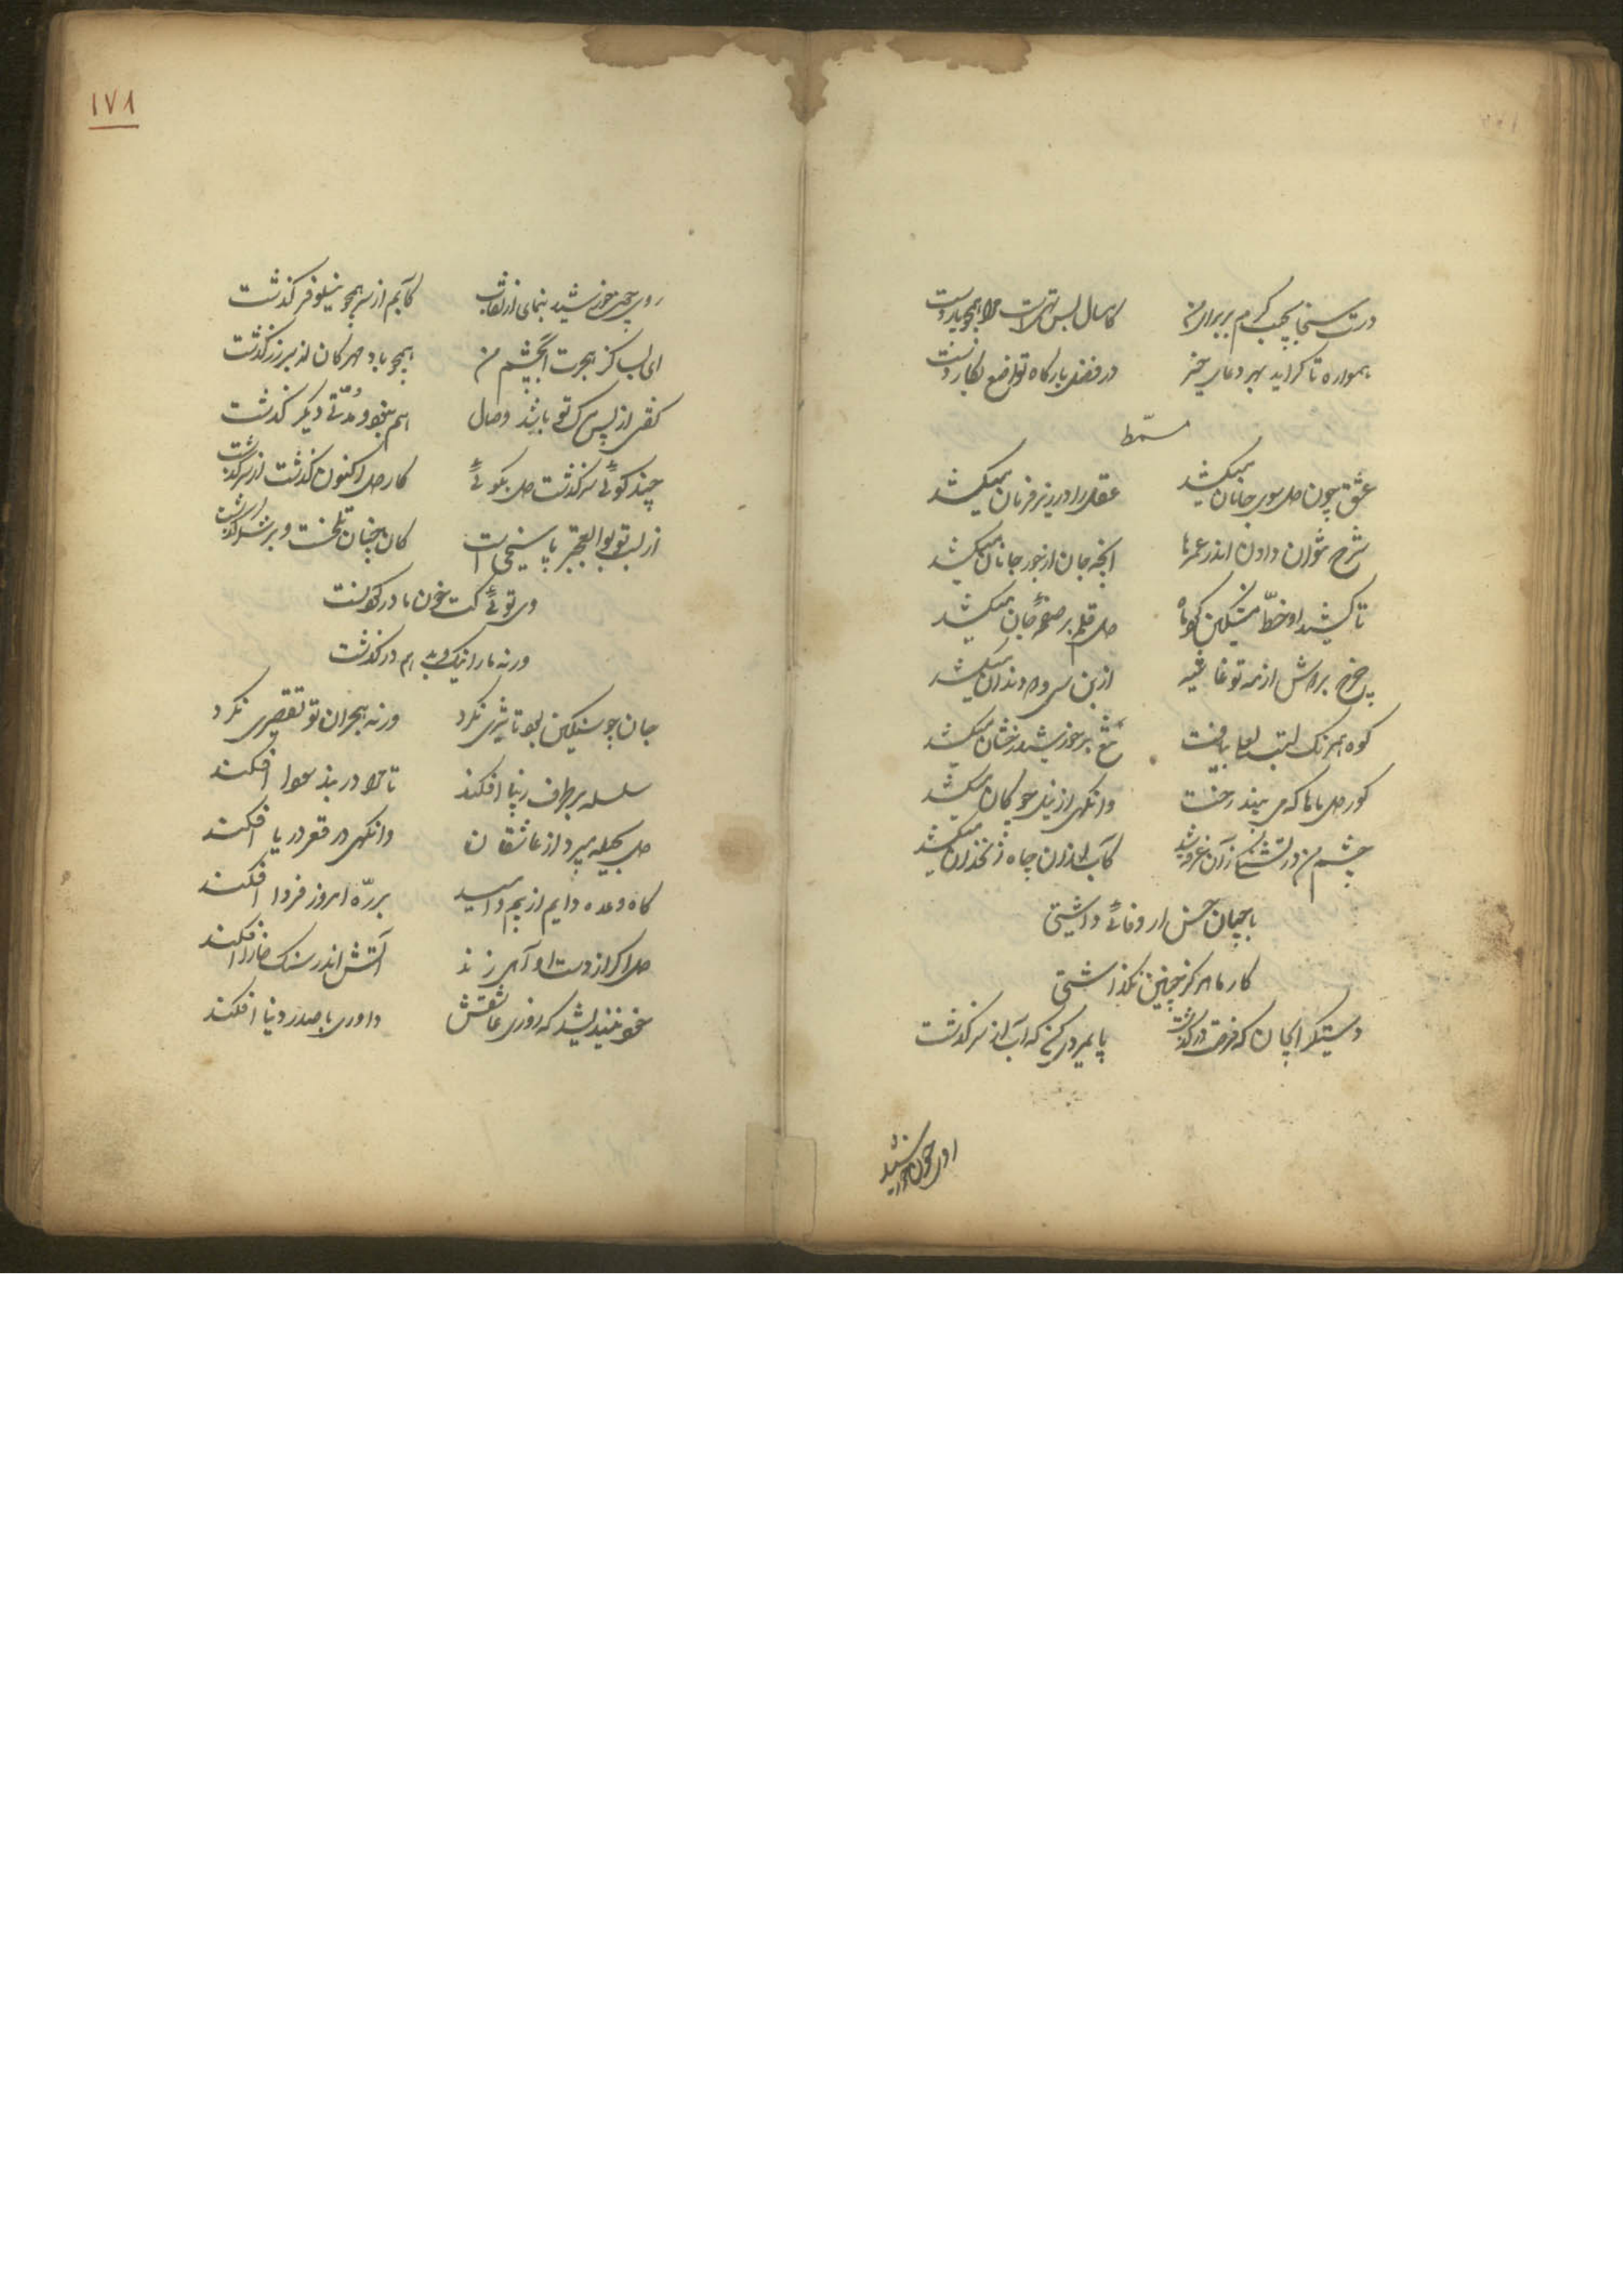 درت سخا بجیب کرم بر برای من کامسال بس تهی است مرا همچو پار دست
همواره تا کراید بهر دعای خیر در فضل بارکاه تواضع نکار دست
مسمط
عشق چون دل سوی جانان میکشد عقل را در زیر فرمان میکشد
شرح نتوان دادن اندر عمرها آنچه جان از جور جانان میکشد
تا کشید او خط مشکین کرد ماه دل قلم بر صفحهٔ جان میکشد
چرخ بر دوش از مه تو غاشیه از بن سی و دو دندان میکشد
کوه همرنک لبت لعلی بیافت تیغ بر خورشید رخشان میکشد
کوی دل ما را که می بیند رخت وانکهی از زلف چوکان میکشد
چشم من در تشنکی زان غرقه شد کاب از آن چاه زنخدان میکشد
با چنان حسن ار وفائی داشتی
کار ما هرکز چنین نکذاشتی
دستکیرا نجان که فرقت در کذشت پایمردی کن که آب از سر کذشت
روی چون خورشید
۱۷۸
روی چون خورشید بنمای از نقاب کابم از سر همچو نیلوفر کذشت
ای بسا کز هجرت آب چشم من همچو باد مهرکان بر زر کذشت
کفتی از پس مرک تو باشد وصال هم نبود و مدتی دیکر کذشت
چند کوئی سرکذشت دل بکوئی کار دل اکنون کذشت از سرکذشت
از لب تو بوالعجبتر پاسخی است کان چنان تلخست و بر شکر کذشت
وی توئی کت خون ما در کردنست
ورنه ما را نیک و بد هم درکذشت
جان چو سنکین بود تاثیری نکرد ورنه هجران تو تقصیری نکرد
سلسله بر طرف زیبا افکند تا مرا در بند سودا افکند
دل بحیله میبرد از عاشقان وانکهی در قعر دریا افکند
کاه وعده دایم از بیم و امید بر ره امروز فردا افکند
دل اکر از دست او آهی زند آتش اندر سنک خارا افکند
خود نیندیشد که روزی عاشقش داوری با صدر دنیا افکند